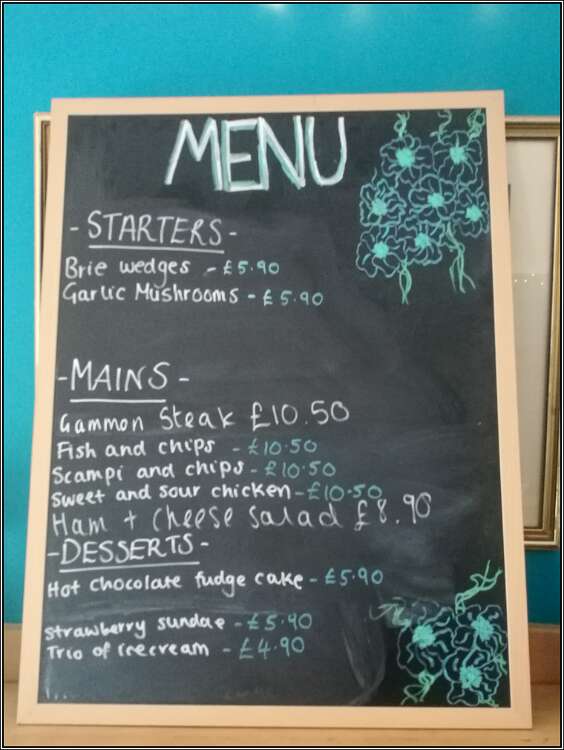 MENU
- STARTERS -
Brie wedges - £5.90
Garlic Mushrooms - £5.90
- MAINS -
Gammon Steak £10.50
Fish and chips - £10.50
Scampi and chips - £10.50
Sweet and sour chicken - £10.50
Ham + Cheese Salad £8.90
- DESSERTS -
Hot chocolate fudge cake - £5.90
Strawberry sundae - £5.90
Trio of icecream - £4.90